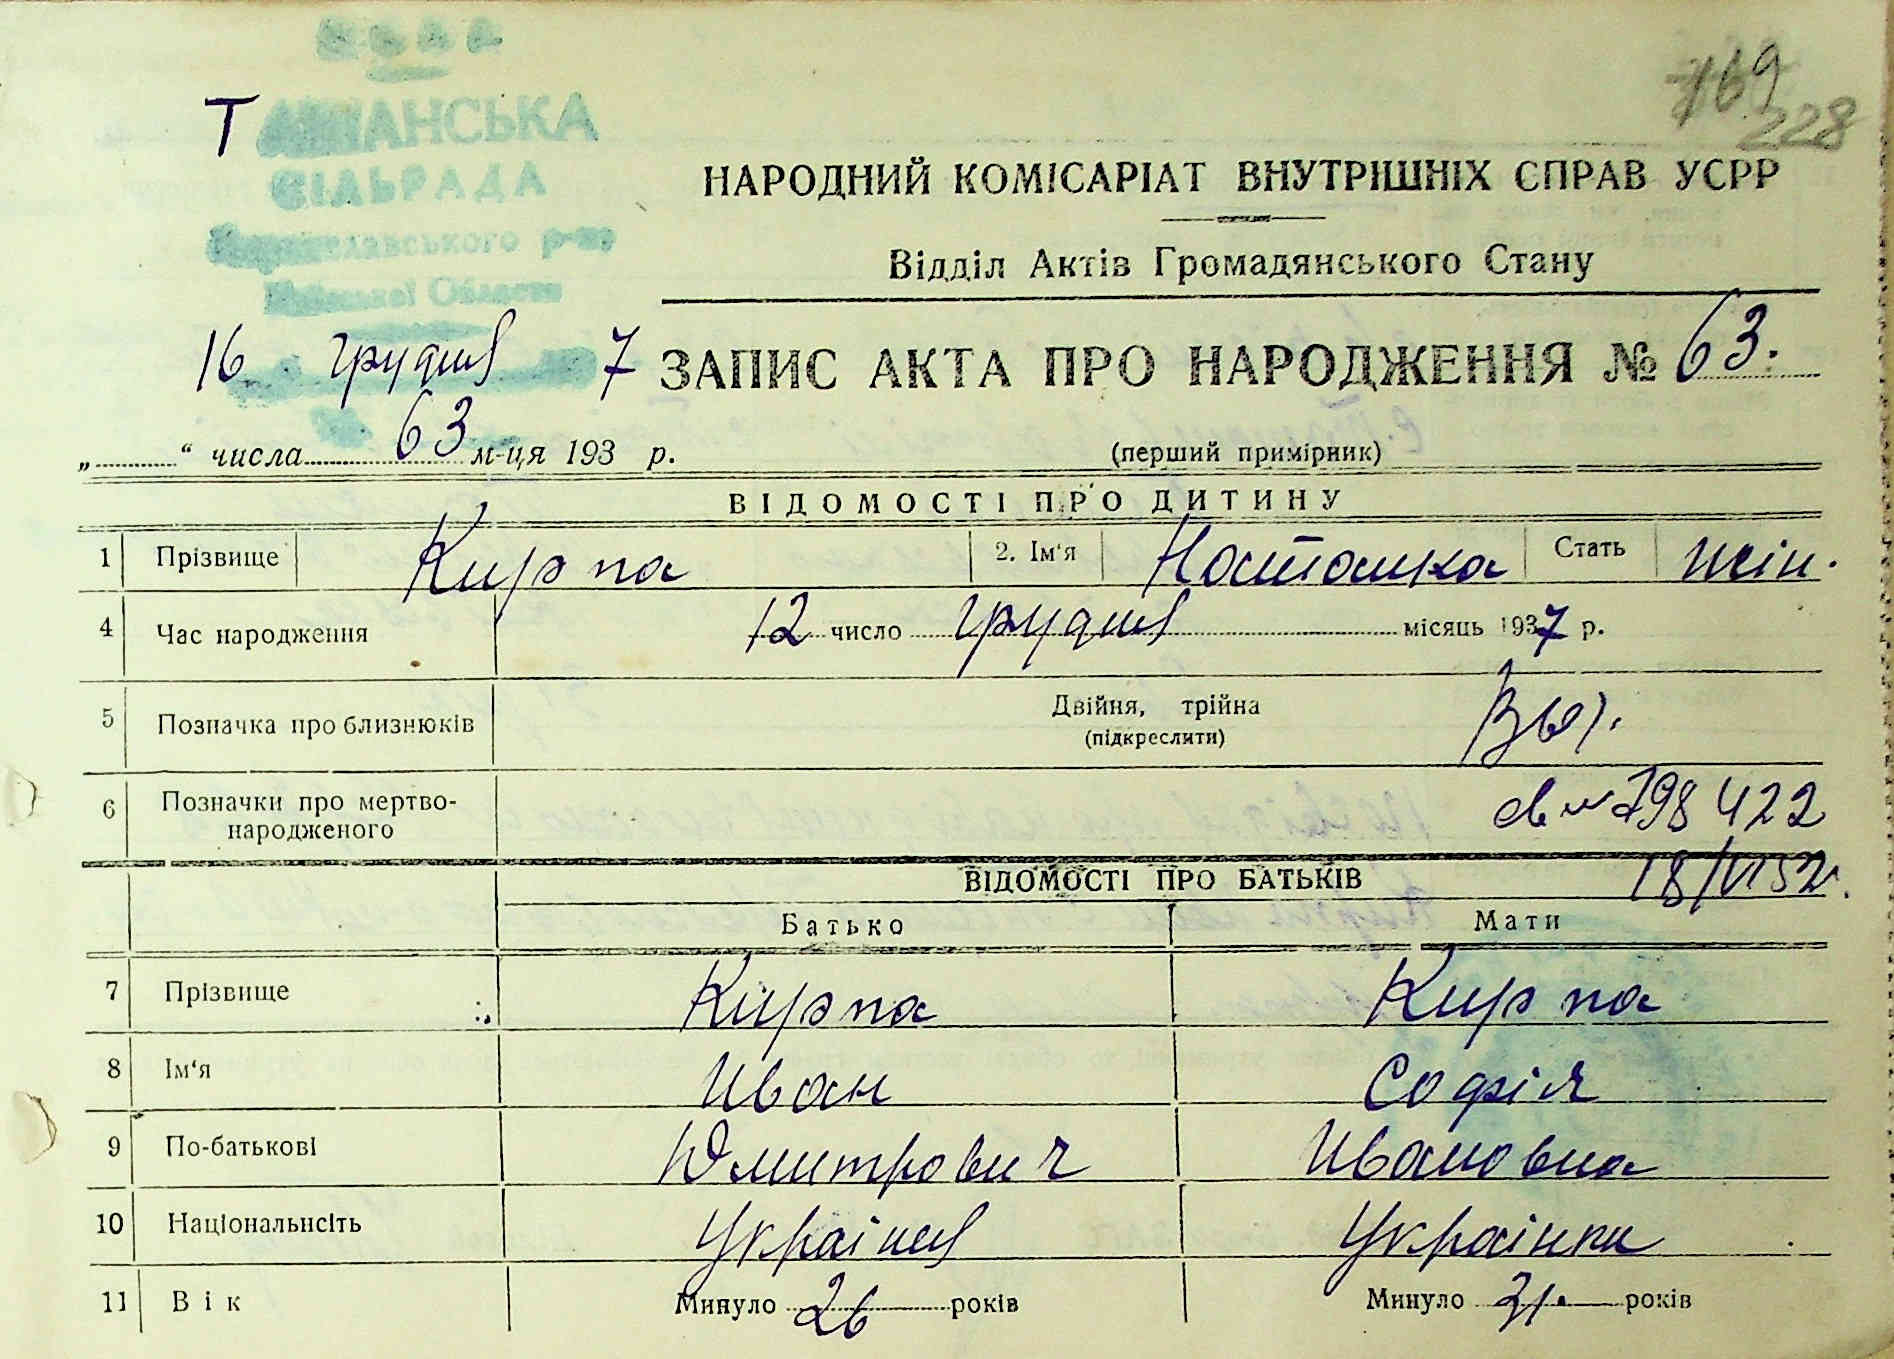 169
228
Т АНСЬКА
СІЛЬРАДА
р-ну
Области
НАРОДНИЙ КОМІСАРІАТ ВНУТРІШНІХ СПРАВ УСРР
Відділ Актів Громадянського Стану
16 грудня 7 ЗАПИС АКТА ПРО НАРОДЖЕННЯ № 63.
„ “ числа 63 м-ця 193 р. (перший примірник)
ВІДОМОСТІ ПРО ДИТИНУ
1 Прізвище Кирпа 2. Ім‘я Наташка Стать жін.
4 Час народження 12 число грудня місяць 1937 р.
5 Позначка про близнюків Двійня, трійна
(підкреслити)
6 Позначки про мертво-
народженого 798422
ВІДОМОСТІ ПРО БАТЬКІВ 18/VI 52
Батько Мати
7 Прізвище Кирпа Кирпа
8 Ім‘я Иван Софія
9 По-батькові Дмитрович Ивановна
10 Національнсіть Україне Українки
11 Вік Минуло 26 років Минуло 21 років